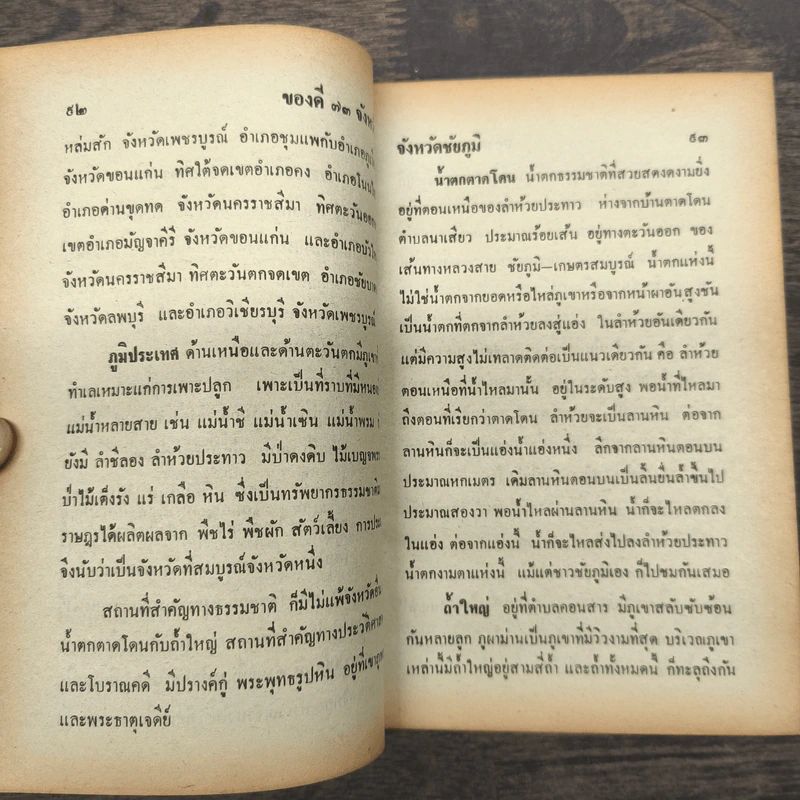 ๕๒
ของดี ๗๓ จังห
หล่มสัก จังหวัดเพชรบูรณ์ อำเภอชุมแพกับอำเภอภู
จังหวัดขอนแก่น ทิศใต้จดเขตอำเภอคง อำเภอโนน
อำเภอด่านขุนทด จังหวัดนครราชสีมา ทิศตะวันออก
เขตอำเภอมัญจาคีรี จังหวัดขอนแก่น และอำเภอบัว
จังหวัดนครราชสีมา ทิศตะวันตกจดเขต อำเภอชัยบา
จังหวัดลพบุรี และอำเภอวิเชียรบุรี จังหวัดเพชรบูรณ์
ภูมิประเทศ ด้านเหนือและด้านตะวันตกมีภูเขา
ทำเลเหมาะแก่การเพาะปลูก เพาะเป็นที่ราบที่มีหนอง
แม่น้ำหลายสาย เช่น แม่น้ำชี แม่น้ำเชิน แม่น้ำพรม
ยังมี ลำชีลอง ลำห้วยประทาว มีป่าดงดิบ ไม้เบญจพร
ป่าไม้เต็งรัง แร่ เกลือ หิน ซึ่งเป็นทรัพยากรธรรมชาติ
ราษฎรได้ผลิตผลจาก พืชไร่ พืชผัก สัตว์เลี้ยง การประ
จึงนับว่าเป็นจังหวัดที่สมบูรณ์จังหวัดหนึ่ง
สถานที่สำคัญทางธรรมชาติ ก็มีไม่แพ้จังหวัดอื่น
น้ำตกตาดโดนกับถ้ำใหญ่ สถานที่สำคัญทางประวัติศาส
และโบราณคดี มีปรางค์กู่ พระพุทธรูปหิน อยู่ที่เขาภู
และพระธาตุเจดีย์
๕๓
จังหวัดชัยภูมิ
น้ำตกตาดโดน น้ำตกธรรมชาติที่สวยสดงดงามยิ่ง
อยู่ที่ตอนเหนือของลำห้วยประทาว ห่างจากบ้านตาดโดน
ตำบลนาเสียว ประมาณร้อยเส้น อยู่ทางตะวันออก ของ
เส้นทางหลวงสาย ชัยภูมิ—เกษตรสมบูรณ์ น้ำตกแห่งนี้
ไม่ใช่น้ำตกจากยอดหรือไหล่ภูเขาหรือจากหน้าผาอันสูงชัน
เป็นน้ำตกที่ตกจากลำห้วยลงสู่แอ่ง ในลำห้วยอันเดียวกัน
แต่มีความสูงไม่เทลาดติดต่อเป็นแนวเดียวกัน คือ ลำห้วย
ตอนเหนือที่น้ำไหลมานั้น อยู่ในระดับสูง พอน้ำที่ไหลมา
ถึงตอนที่เรียกว่าตาดโดน ลำห้วยจะเป็นลานหิน ต่อจาก
ลานหินก็จะเป็นแอ่งน้ำแอ่งหนึ่ง ลึกจากลานหินตอนบน
ประมาณหกเมตร เดิมลานหินตอนบนเป็นลิ้นยื่นล้ำขึ้นไป
ประมาณสองวา พอน้ำไหลผ่านลานหิน น้ำก็จะไหลตกลง
ในแอ่ง ต่อจากแอ่งนี้ น้ำก็จะไหลส่งไปลงลำห้วยประทาว
น้ำตกงามตาแห่งนี้ แม้แต่ชาวชัยภูมิเอง ก็ไปชมกันเสมอ
ถ้ำใหญ่ อยู่ที่ตำบลคอนสาร มีภูเขาสลับซับซ้อน
กันหลายลูก ภูผาม่านเป็นภูเขาที่มีวิวงามที่สุด บริเวณภูเขา
เหล่านี้มีถ้ำใหญ่อยู่สามสี่ถ้ำ และถ้ำทั้งหมดนี้ ก็ทะลุถึงกัน